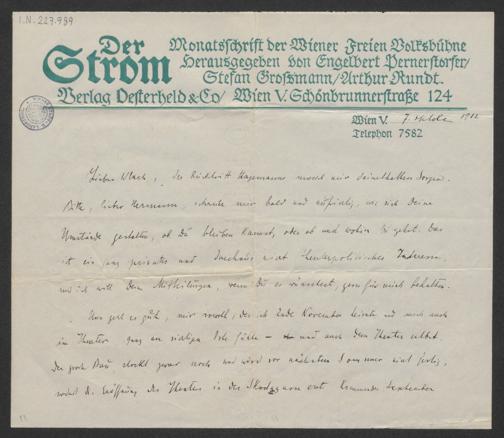 I.N. 227.989
Der Strom
Monatsschrift der Wiener Freien Volksbühne
Herausgegeben von Engelbert Pernerstorfer/
Stefan Großmann/Arthur Rundt.
Verlag Oesterheld & Co/ Wien V. Schönbrunnerstraße 124
Wien V. 7. Oktober 1912
Telephon 7582
Lieber, der Rücktritt Hagemanns macht mir deinethalben Sorgen.
Bitte, lieber Hermann, schreibe mir bald und aufrichtig, wie sich Deine
Umstände gestalten, ob du bleiben kannst, oder ob und wohin Du gehst. Das
ist ein ganz privates und durchaus nicht theaterpolitisches Interesse,
und ich will Deine Mitteilungen, wenn Du es wünschest, gern für mich behalten.
Uns geht es gut, mir sowohl, der ich Ende November heirate und mich auch
im Theater ganz am richtigen Orte fühle – und auch dem Theater selbst.
Der große Bau stockt zwar noch und wird vor nächstem Sommer nicht fertig,
die Eröffnung des Theaters in der erst September